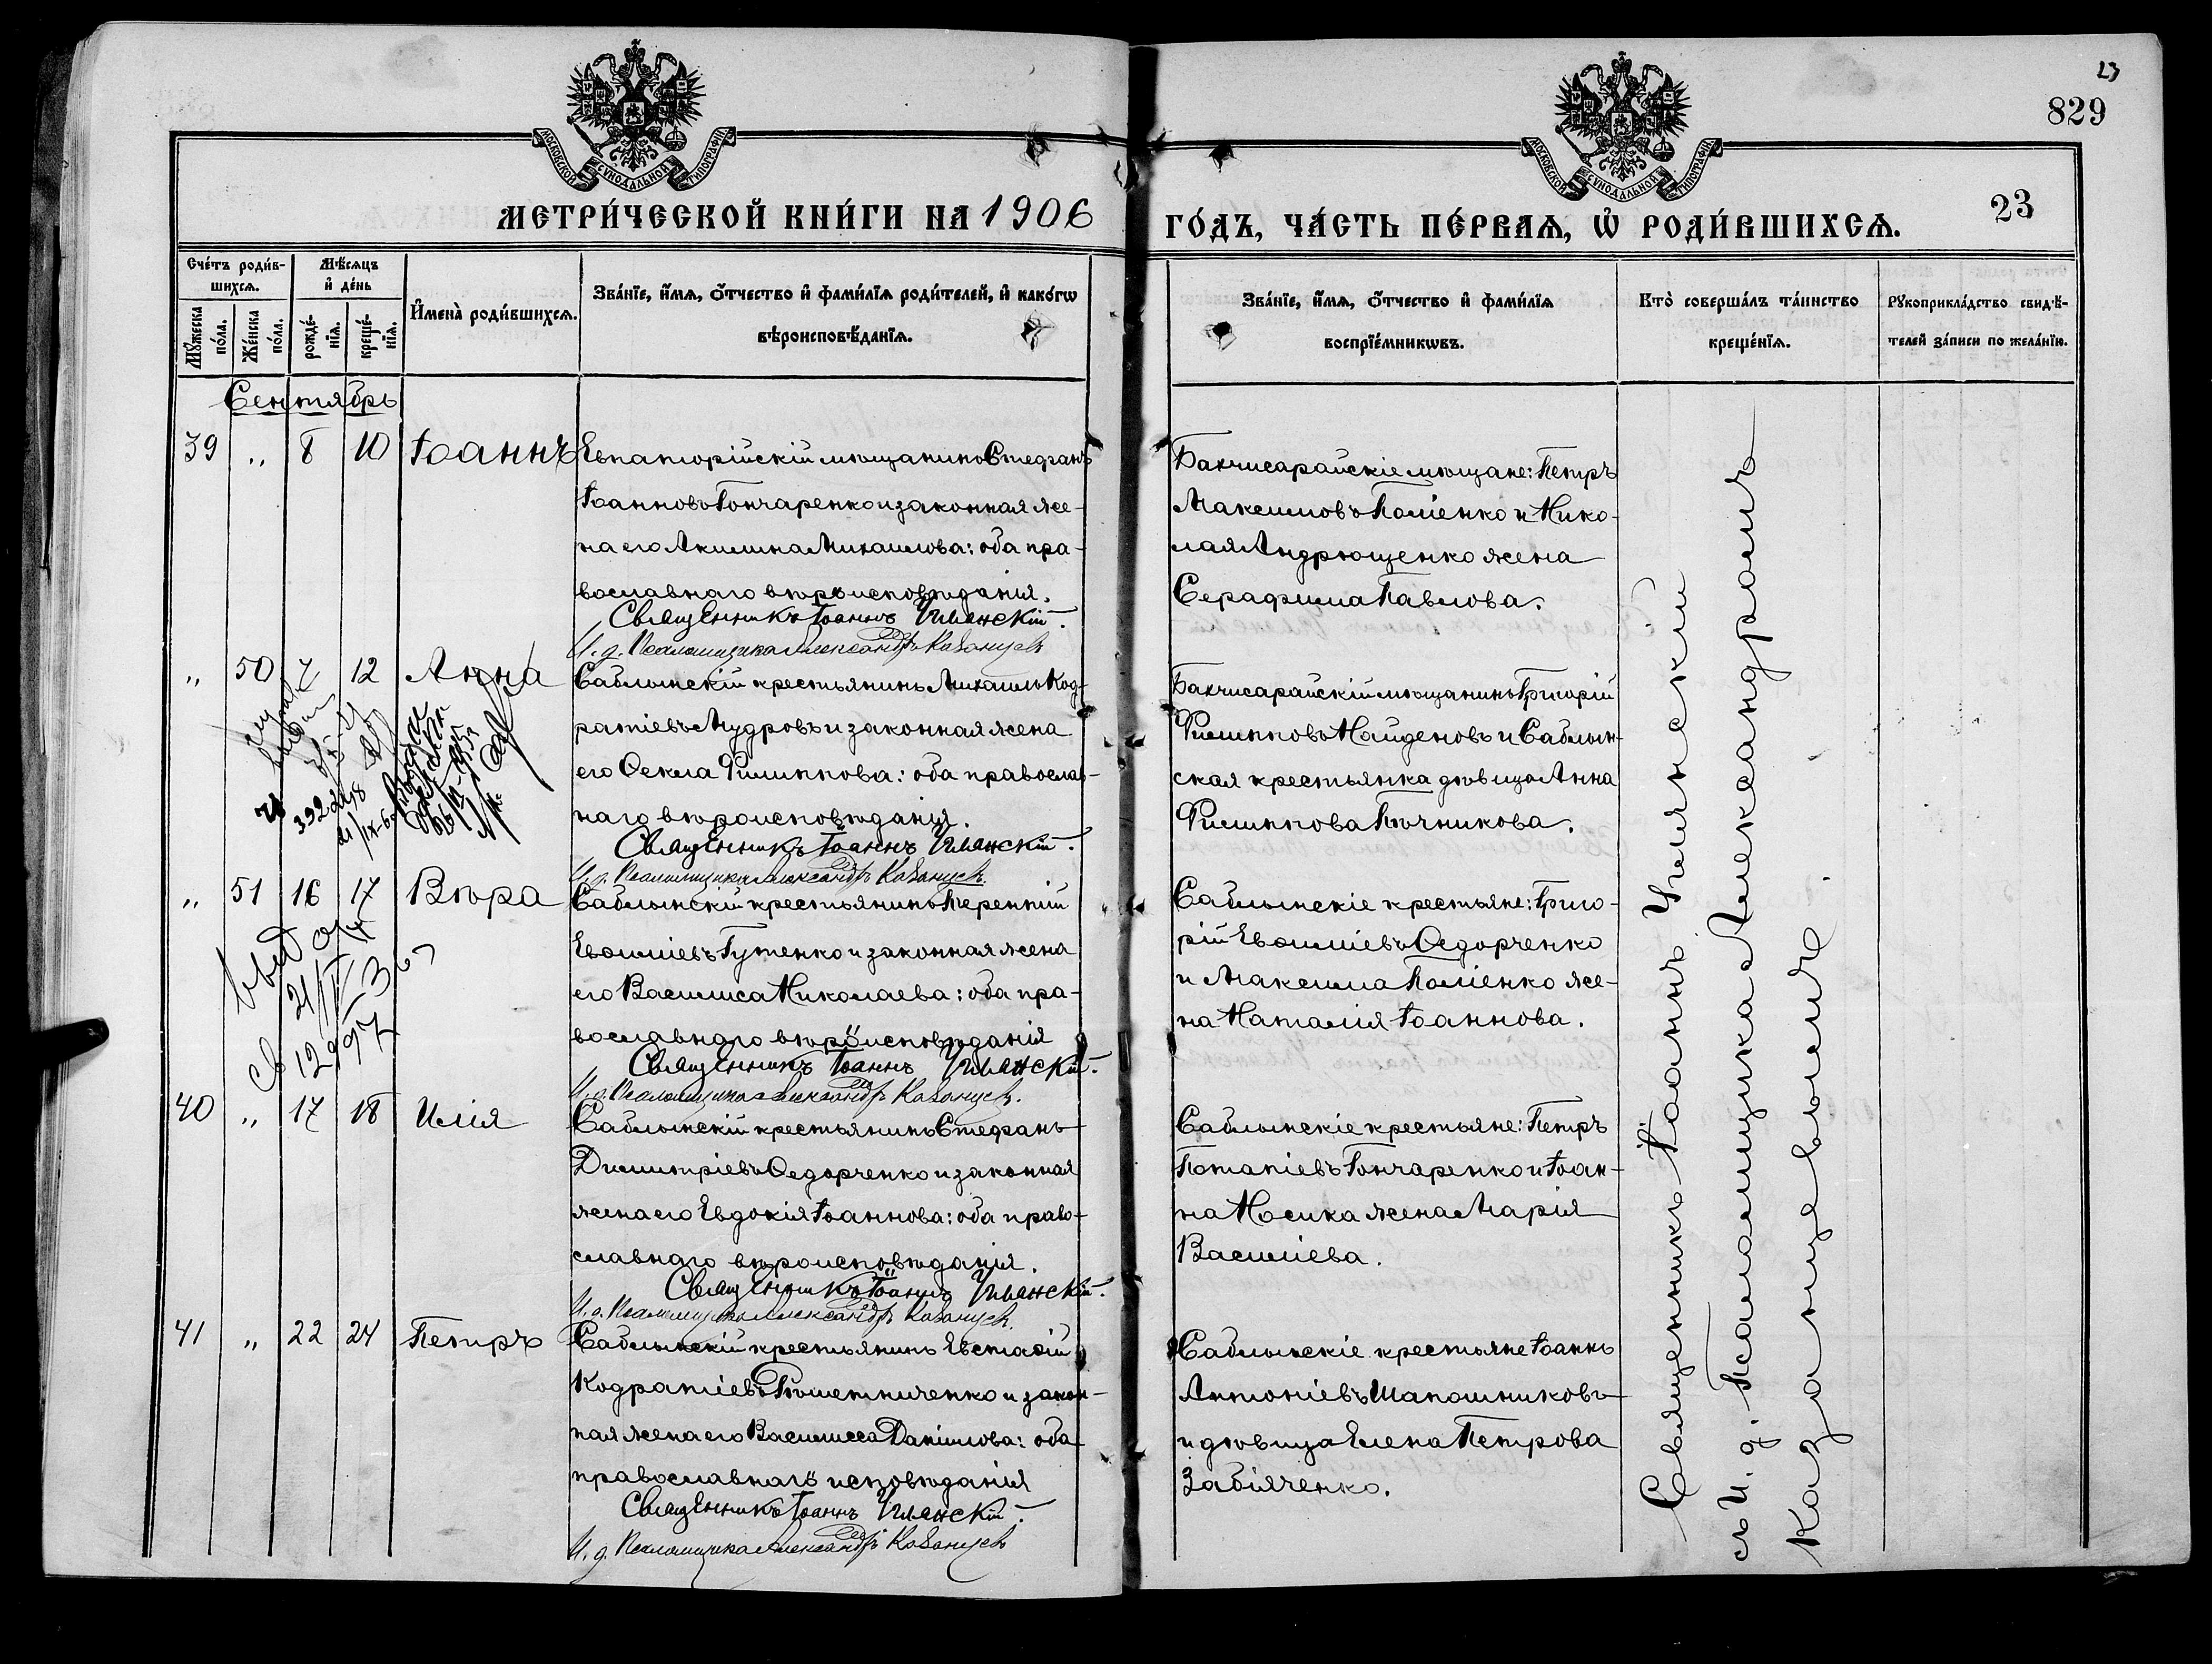 23
829
МОСКОВСКОЙ СѴНОДАЛЬНОЙ ТИПОГРАФІИ
МОСКОВСКОЙ СѴНОДАЛЬНОЙ ТИПОГРАФІИ
МЕТРИ́ЧЕСКОЙ КНИ́ГИ НА 1906
ГО́ДЪ, ЧА́СТЬ ПЕ́РВАѦ, Ѡ҆ РОДИ́ВШИХСѦ.
23
Сче́тъ роди́в-
шихсѧ.
Мꙋ́жеска по́ла.
Же́нска по́ла.
Мѣ́сѧцъ
и҆ де́нь
рожде́-
нїѧ.
креще́-
нїѧ.
И҆мена̀ роди́вшихсѧ.
Зва́нїе, и҆́мѧ, ѻ҆́тчество и҆ фами́лїѧ роди́телей, и҆ како́гѡ
вѣроисповѣ́данїѧ.
Зва́нїе, и҆́мѧ, ѻ҆́тчество и҆ фами́лїѧ
воспрїе́мникѡвъ.
Кто̀ соверша́лъ та́инство
креще́нїѧ.
Рꙋкоприкла́дство свидѣ́-
телей за́писи по жела́нїю.
Сентябрь
39 „ 8 10 Іоаннъ
Евпаторійскій мѣщанинъ Стефанъ
Іоанновъ Гончаренко и законная же-
на его Акилина Михаилова: оба пра-
вославнаго вѣроисповѣданія.
Священникъ Іоаннъ Углянскій.
И. д. Псаломщика Александръ Казанцевъ
Бахчисарайскіе мѣщане: Петръ
Максимовъ Поліенко и Нико-
лая Андрющенко жена
Серафима Павлова.
„ 50 7 12 Анна
Саблынскій крестьянинъ Михаилъ Код-
ратіевъ Мудровъ и законная жена
его Ѳекла Филиппова: оба православ-
наго вѣроисповѣданія.
Священникъ Іоаннъ Углянскій.
И. д. Псаломщика Александръ Казанцевъ.
Бахчисарайскій мѣщанинъ Григорій
Филипповъ Найденовъ и Саблын-
ская крестьянка дѣвица Анна
Филиппова Пѣчникова.
„ 51 16 17 Вѣра
Саблынскій крестьянинъ Терентій
Евѳиміевъ Гутенко и законная жена
его Василиса Николаева: оба пра-
вославнаго вѣроисповѣданія
Священникъ Іоаннъ Углянскій.
И. д. Псаломщика Александръ Казанцевъ.
Саблынскіе крестьяне: Григо-
рій Евѳиміевъ Ѳедорченко
и Максима Поліенко же-
на Наталія Іоаннова.
40 „ 17 18 Илія
Саблынскій крестьянинъ Стефанъ
Димитріевъ Ѳедорченко и законная
жена его Евдокія Іоаннова: оба право-
славнаго вѣроисповѣданія.
Священникъ Іоаннъ Углянскій.
И. д. Псаломщика Александръ Казанцевъ.
Саблынскіе крестьяне: Петръ
Потапіевъ Гончаренко и Іоан-
на Носика жена Марія
Василіева.
41 „ 22 24 Петръ
Саблынскій крестьянинъ Евстаѳій
Кодратіевъ Рѣшетниченко и закон-
ная жена его Василисса Даніилова: оба
православнаго исповѣданія
Священникъ Іоаннъ Углянскій.
И. д. Псаломщика Александръ Казанцевъ
Саблынскіе крестьяне Іоаннъ
Антоніевъ Шапошниковъ
и дѣвица Елена Петрова
Забіяченко.
Священникъ Іоаннъ Углянскій
съ И. д. Псаломщика Александромъ
Казанцевымъ.